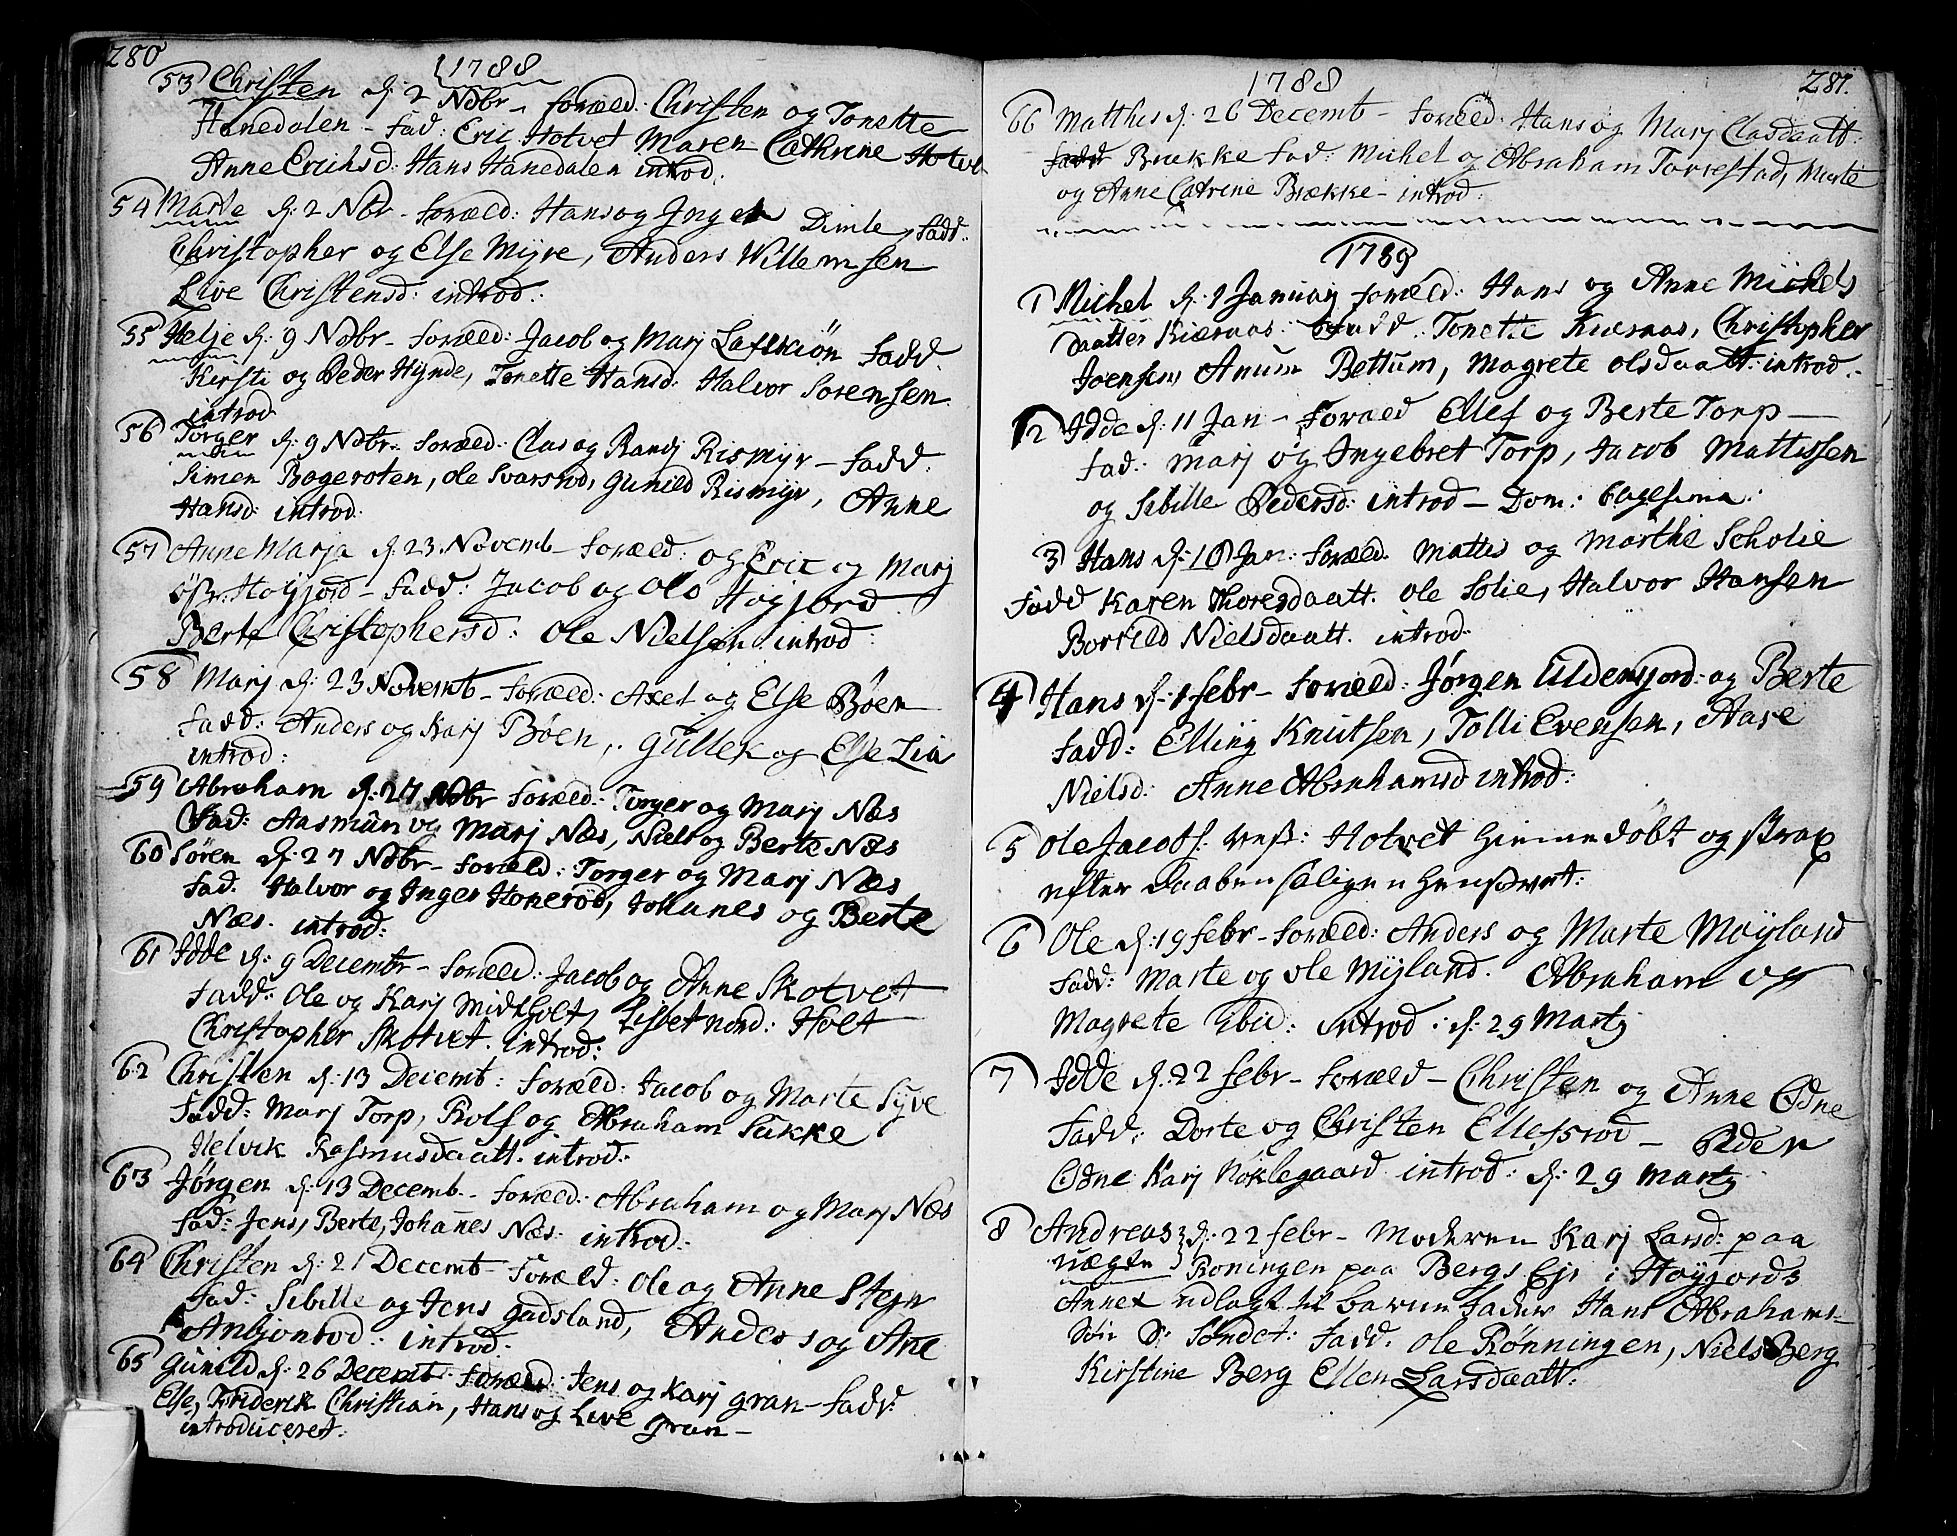 280
1788
53 Christen d. 2 Nobr - foræld: Christen og Tonette
Hanedalen - fad: Eric Hotvet Maren Cathrine Hotvet
Anne Erichsd: Hans Hanedalen introd:
54 Marte d: 2 Nobr - foræld: Hans og Inger Dimle, fadd:
Christopher og Else Myre, Anders Willemsen
Live Christensd: introd:
55 Helje d: 9 Nobr - foræld: Jacob og Marj Lafskiön fadd
Kersti og Peder Hynde, Tonette Hansd: Halvor Sørensen
introd
56 Torger d: 9 Nobr - foræld: Clas og Randj Rismyr - fadd:
Simen Bogeroten, Ole Svarstod, Gunild Rismyr, Anne
Hansd: introd:
57 Anne Marja d. 23 Novemb - foræld: og Eric og Marj
Høyjord - fadd: Jacob og Ole Høyjord
Berte Christophersd: Ole Nielsen introd:
58 Marj d: 23 Novemt - foræld: Axel og Else Bøen
fadd: Anders og Karj Bøen, Gullek og Else Lia
introd:
59 Abraham d: 27 Nobr foræld: Torger og Marj Næs
fad: Aasmun og Marj Næs, Niels og Berte Næs
60 Søren d: 27 Nobr - foræld: Torger og Marj Næs
fad. Halvor og Inger Honerød, Johanes og Berte
Næs. introd:
61 Idde d: 9 Decembr - foræld: Jacob og Anne Skotvet
fadd: Ole og Karj Midtholt, Lisset nord: Holt
Christopher Skotvet. introd:
62 Christen d. 13 Decemt: foræld: Jacob og Marte Syve
fadd: Marj Torp, Rolf og Abraham Sukke
Helvik Rasmusdaatt. introd:
63 Jørgen d: 13 Decemb - foræld: Abraham og Marj Næs
fad: Jens, Berte, Johanes Næs: introd:
64 Christen d: 21 Decemt - foræld: Ole og Anne Stejn
fad: Sibille og Jens Gadsland, Andes og Ane
Anbjonrod: introd:
65 Gunild d: 26 Decemt: foræld: Jens og Karj Gran - fadd:
Else, Friderik Christian, Hans og Live Gran -
introduceret:
1788
281.
66 Matthis d: 26 Decemt - foræld: Hans og Marj Clasdaatt:
fadd Brække fad: Michel og Abraham Torrestad, Marte
og Anne Catrine Brække - introd:
1789
1 Michel d: 1 Januarj foræld: Hans og Anne Michels
daatter Kiæraas: fadd: Tonette Kiæraas, Christopher
Joensen Anum Bettum, Magrete Olsdaatt: introd:
2 Idde d: 11 Jan - foræld Ellef og Berte Torp -
fad: Marj og Ingebret Torp, Jacob Mattissen
og Sibille Pedersd: introd - Dom: 6agesima:
3 Hans d: 18 Jan: foræld: Mattis og Marthe Scholie
fadd Karen Thoresdaatt. Ole Solie, Halvor Hansen
Borrild Nielsdaatt. introd:
4 Hans d: 1 febr - foræld: Jørgen Uldensjord: og Berte
fadd: Elling Knutsen, Tolli Evensen, Aase
Nielsd: Anne Abrahamsd introd:
5 Ole Jacobs. Hotvet hiemmedøbt og strax
efter Daaben saligen hensovet:
6 Ole d: 19 febr - foræld: Anders og Marte Moyland
fadd: Marte og Ole Myland. Abraham og
Magrete introd: d: 29 Martj
7 Idde d: 22 febr - foræld - Christen og Anne Odne
fadd: Dorte og Christen Ellefsrod - Peder
Odne Karj Nøklegaard introd: d: 29 Martj
8 Andreas d: 22 febr - Moderen Karj Larsd: paa
uægte Roningen paa Bergs Ejr i Høyjords
Annex udlagt til barne fader Hans Abrahams-
Søn fadd: Ole Rønningen, Niels Berg
Kirstine Berg Ellen Larsdaatt: